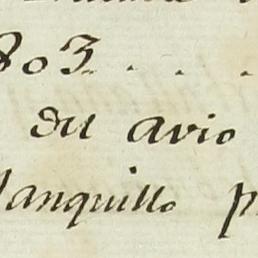 803 . . .
del avio
lanquillo p